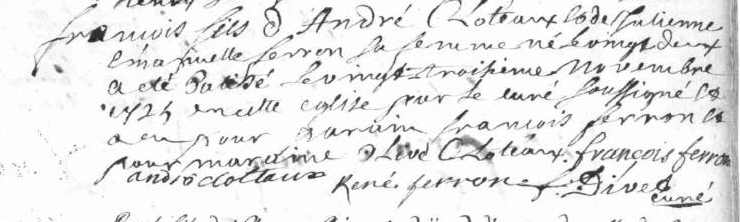 françois fils d'André Cloteaux & de Julienne
ferron sa femme né le vingt deux
a eté Batisé le vingt troisieme novembre
en cette eglise par le curé soussigné &
a eu pour parain françois ferron &
pour maraine Cloteaux. françois ferron
andré Clotaux René ferron f: Dives
curé